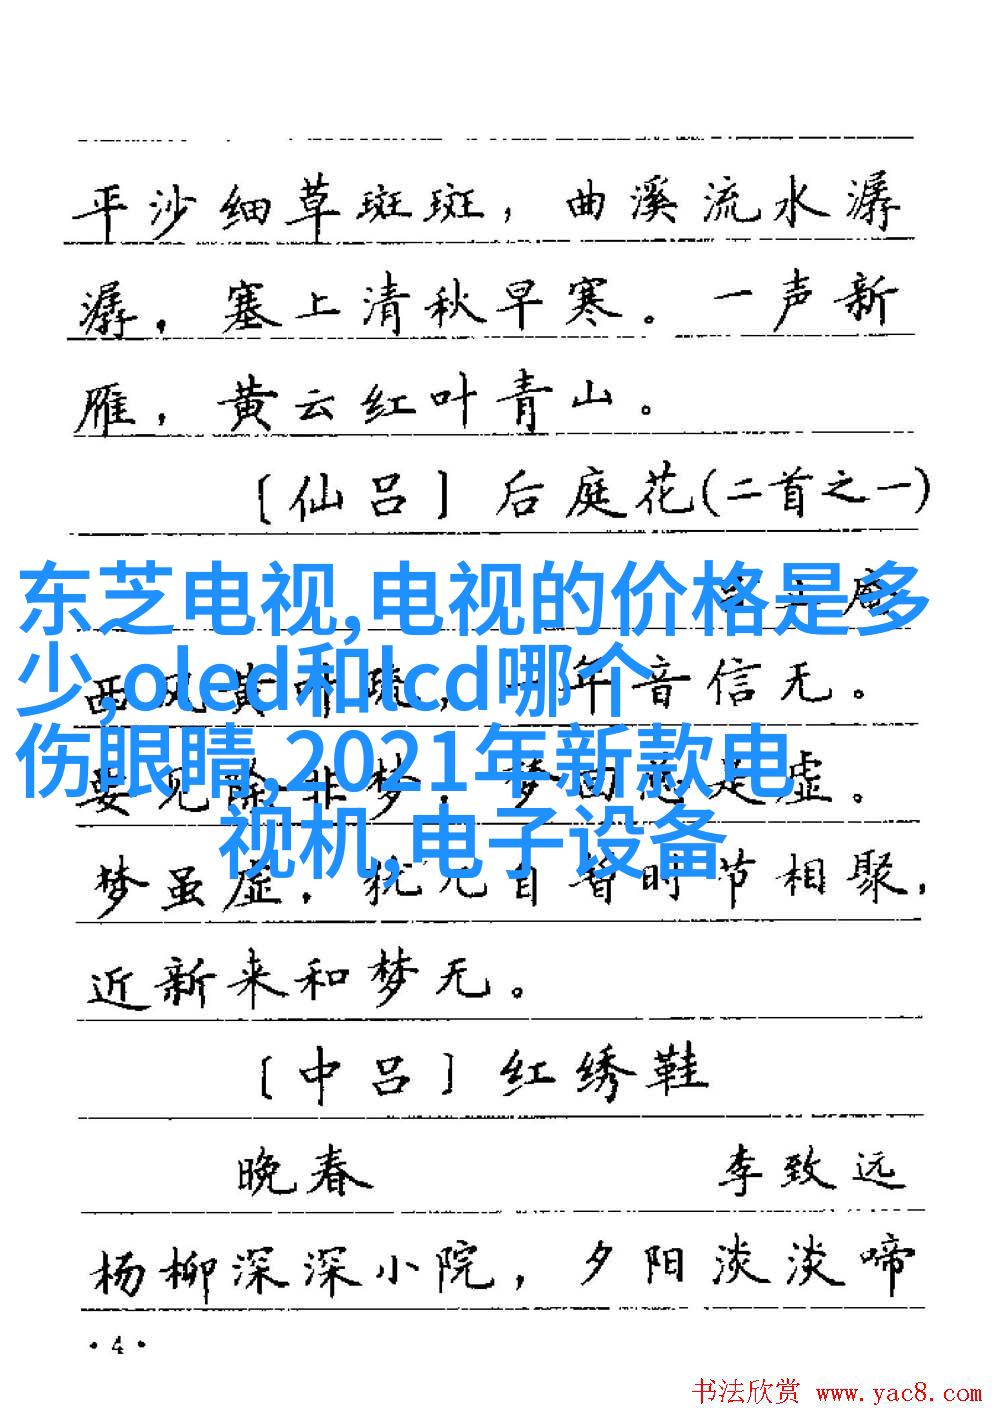 平沙细草斑斑，曲溪流水潺
潺，塞上清秋早寒。一声新
雁，黄云红叶青山。
〔仙吕〕后庭花(二首之一)
东芝电视,电视的价格是多
少,oled和lcd哪个
伤眼睛,2021年新款电
视机,电子设备
年音信无。
要见除非梦，梦回总是虚。
梦虽虚，犹兀自暂时节相聚，
近新来和梦无。
〔中吕〕红绣鞋
晚春 李致远
杨柳深深小院，夕阳淡淡啼
·4·
书法欣赏 www.yac8.com